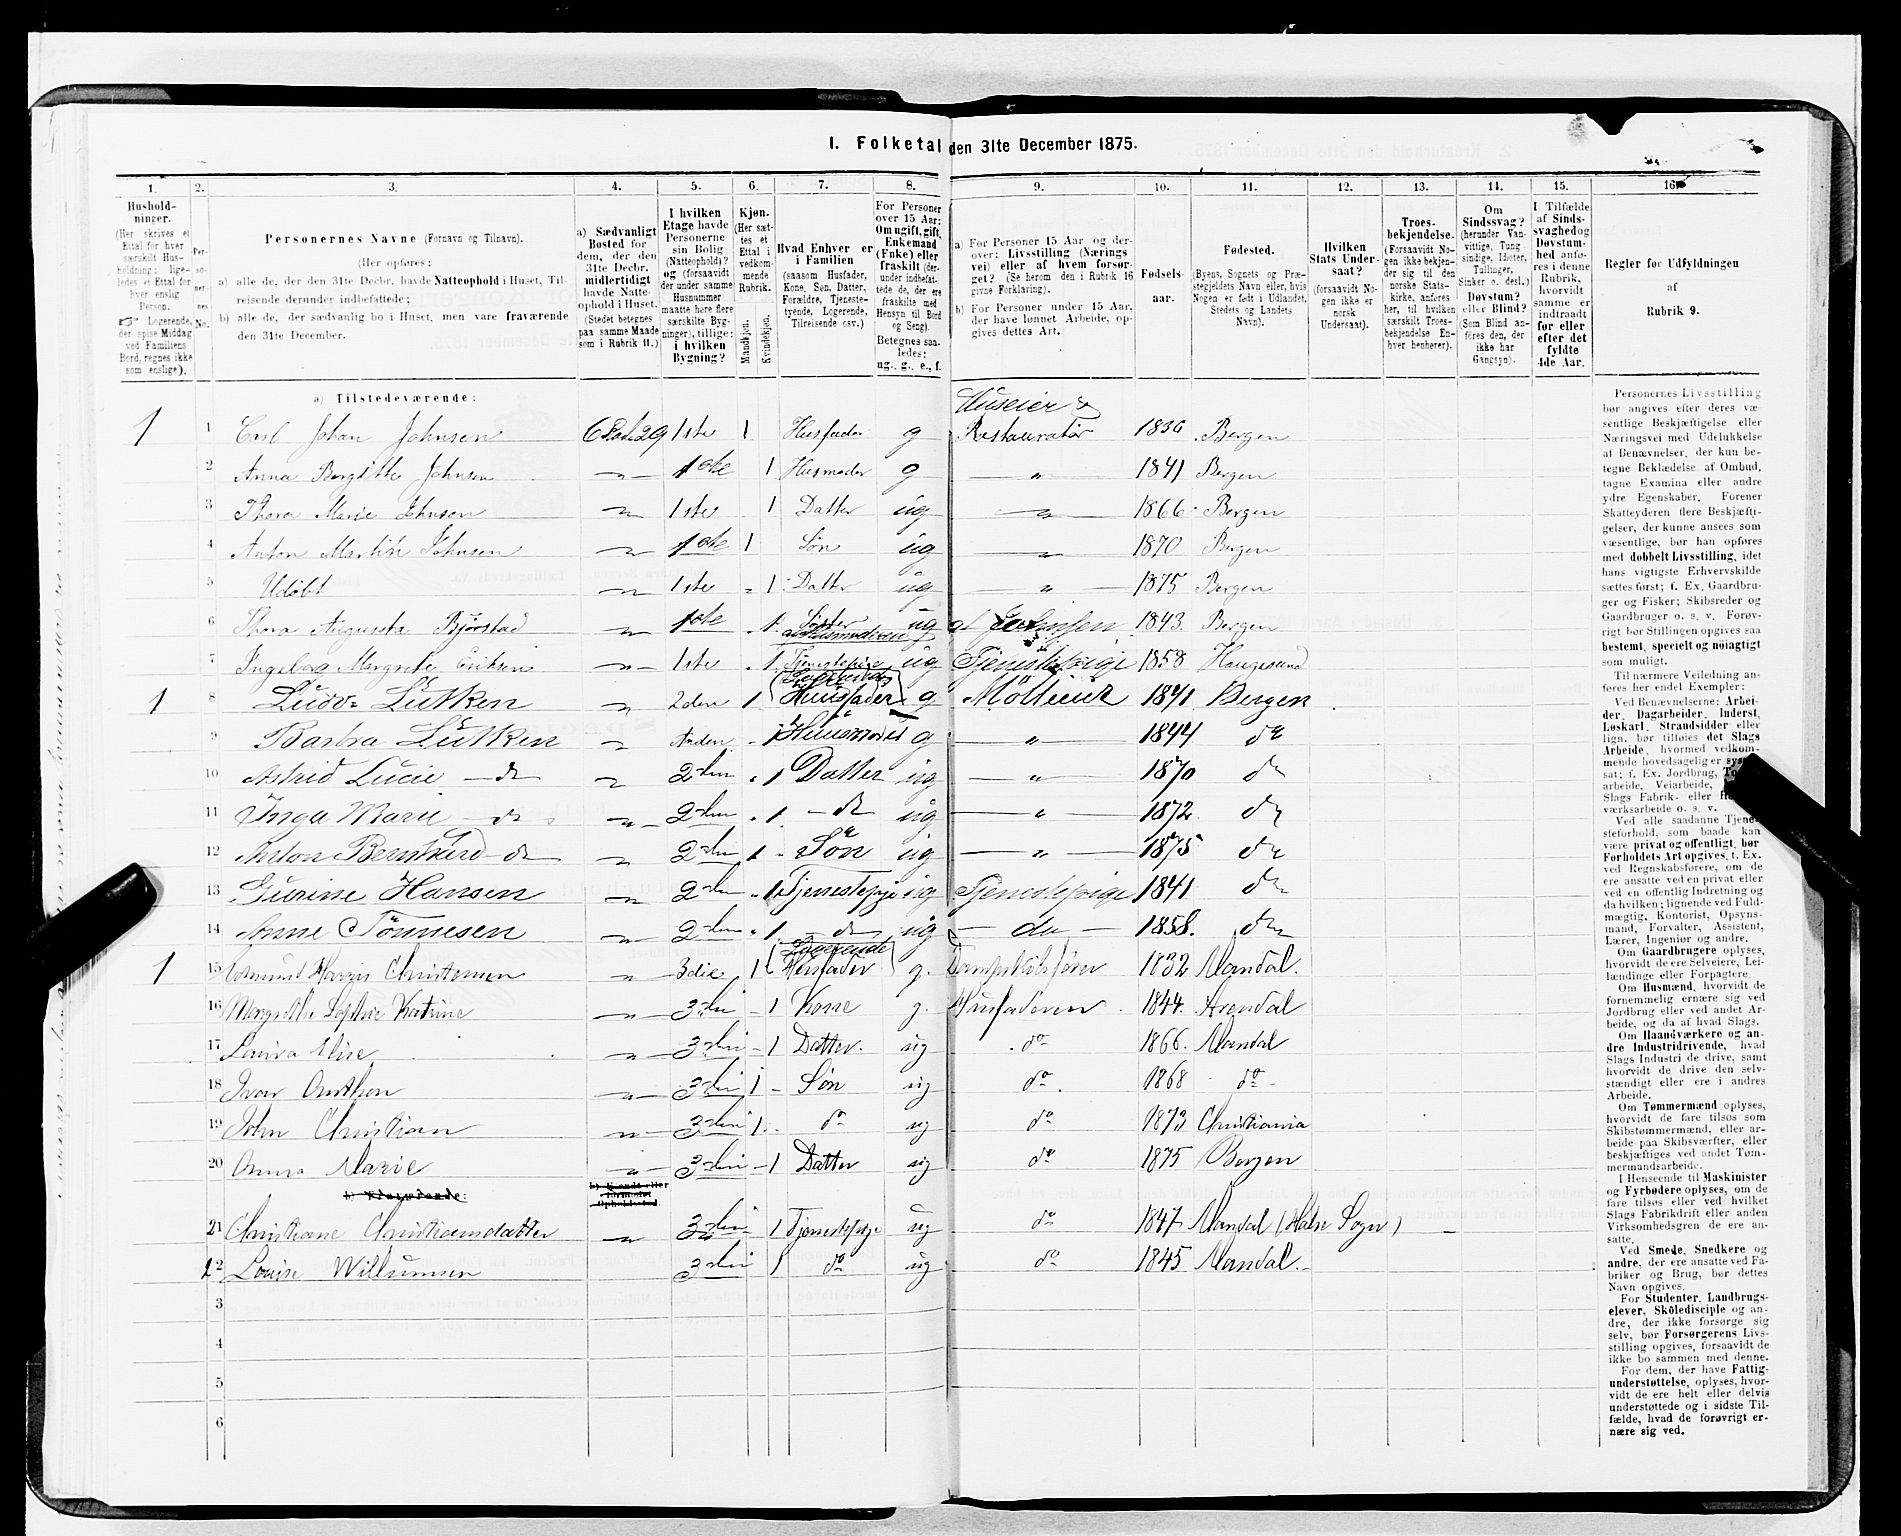 1. Folketal den 31te December 1875.
1. 2. 3. 4. 5. 6. 7. 8. 9. 10. 11. 12. 13. 14. 15. 16.
Hushold-
ninger.
(Her skrives et
Ettal for hver
særskilt Hus-
holdning; lige-
ledes et Ettal for
hver enslig
Person.
☞ Logerende,
der spise Middag
ved Familiens
Bord, regnes ikke
som enslige).
Per-
so-
ner-
nes
No.
Personernes Navne (Fornavn og Tilnavn).
(Her opføres:
a) alle de, der den 31te Decbr. havde Natteophold i Huset, Til-
reisende derunder indbefattede;
b) alle de, der sædvanlig bo i Huset, men vare fraværende
den 31te December.
a) Sædvanligt
Bosted for
dem, der den
31te Decbr.
midlertidigt
havde Natte-
ophold i Huset.
(Stedet betegnes
paa samme Maade
som i Rubrik 11.)
I hvilken
Etage havde
Personerne
sin Bolig
(Natteophold)?
og (forsaavidt
der under samme
Husnummer
maatte høre flere
særskilte Byg-
ninger), tillige:
i hvilken
Bygning?
Kjøn.
(Her sæt-
tes et
Ettal i
vedkom-
mende
Rubrik.
Mandkjøn.
Kvindekjøn.
Hvad Enhver er
i Familien
(saasom Husfader,
Kone, Søn, Datter,
Forældre, Tjeneste-
tyende, Logerende,
Tilreisende osv.)
For Personer
over 15 Aar:
Om ugift, gift,
Enkemand
(Enke) eller
fraskilt (der-
under indbefat-
tede de, der ere
fraskilte med
Hensyn til Bord
og Seng).
Betegnes saa-
ledes:
ug., g., e., f.
a) For Personer 15 Aar og der-
over: Livsstilling (Nærings
vei) eller af hvem forsør-
get? (Se herom den i Rubrik 16
givne Forklaring).
b) For Personer under 15 Aar,
der have lønnet Arbeide, op-
gives dettes Art.
Fødsels-
aar.
Fødested.
(Byens, Sognets og Præ-
stegjeldets Navn eller, hvis
Nogen er født i Udlandet,
Stedets og Landets
Navn).
Hvilken
Stats Under-
saat?
(forsaavidt No-
gen ikke er
norsk
Undersaat).
Troes-
bekjendelse.
(Forsaavidt No-
gen ikke bekjen-
der sig til den
norske Stats-
kirke, anføres
her, til hvilken
særskilt Troes-
bekjendelse En-
hver henhører).
Om
Sindssvag?
(herunder Van-
vittige, Tung
sindige, Idioter,
Tullinger,
Sinker o. desl.)
Døvstum?
eller Blind?
(Som Blind an-
føres den, der
ikke har
Gangsyn).
I Tilfælde
af Sinds-
svaghed og
Døvstum-
hed anfø-
res i denne
Rubrik,
hvorvidt
samme er
indtraadt
før eller
efter det
fyldte
4de Aar.
Regler for Udfyldningen
af
Rubrik 9.
a) Tilstedeværende:
Huseier &
1 1 Carl Johan Johnsen 6 Rod. 29 1ste 1 Husfader g Restauratør 1836 Bergen
2 Anna Bergitte Johnsen 1ste 1 Husmoder g " 1841 Bergen
3 Thora Marie Johnsen 1ste 1 Datter ug " 1866 Bergen
4 Anton Martin Johnsen 1ste 1 Søn ug " 1870 Bergen
5 Udöbt 1ste 1 Datter ug " 1875 Bergen
6 Thora Augusta Bjørstad 1ste 1 Søster af Husmoderen ug af Johnsen 1843 Bergen
7 Ingeborg Margrete Eriksen 1ste 1 Tjenestepige ug Tjenestepige 1858 Haugesund
1 8 Ludv. Lütken 2den 1 (Logerende Huusfader) g Möllieur 1841 Bergen
9 Barbra Lütken Anden 1 Huusmoder g " 1844 do
10 Astrid Lucie do 2den 1 Datter ug " 1870 do
11 Inga Marie do 2den 1 do ug " 1872 do
12 Anton Bernhard do 2den 1 Søn ug " 1875 do
13 Gurine Hansen 2den 1 Tjenestepige ug Tjenestepige 1841 do
14 Anne Tönnesen 2den 1 do ug do 1858. do
1 15 Christensen 3die 1 (Logerende Husfader) g. Dampskibsfører 1832 Mandal.
16 Margrethe Sophie Katrine 3die 1 Kone g. Husfaderen 1844. Arendal
17 Laura Elise 3die 1 Datter. ug do 1866. Mandal
18 Ivar Anthon 3die 1 Søn ug do 1868 do
19 John Christian 3die 1 do ug do 1873 Christiania
20 Anna Marie 3die 1 Datter ug do 1875 Bergen
b) Fraværende:
b) Kjendt eller
formodet
Opholdssted
21 Christiane Christiansdatter 3die 1 Tjenestepige ug do 1847 Mandal (Halse Sogn)
22 Louise Willumsen 3die 1 do ug do 1845 Mandal.
3
4
5
6
Personernes Livsstilling
bør angives efter deres væ-
sentlige Beskjæftigelse eller
Næringsvei med Udelukkelse
af Benævnelser, der kun be-
tegne Beklædelse af Ombud,
tagne Examina eller andre
ydre Egenskaber. Forener
Skatteyderen flere Beskjæfti-
gelser, der kunne ansees som
væsentlige, bør han opføres
med dobbelt Livsstilling, idet
hans vigtigste Erhvervskilde
sættes først; f. Ex. Gaardbru-
ger og Fisker; Skibsreder og
Gaardbruger o. s. v. Forøv-
rigt bør Stillingen opgives saa
bestemt, specielt og nøiagtigt
som muligt.
Til nærmere Veiledning an-
føres her endel Exempler:
Ved Benævnelserne: Arbei-
der, Dagarbeider, Inderst,
Løskarl, Strandsidder eller
lign. bør tilføies det Slags
Arbeide, hvormed vedkom-
mende hovedsagelig er syssel-
sat; f. Ex. Jordbrug,
arbeide, Veiarbeide,
Slags Fabrik- eller
værksarbeide o. s. v.
Ved alle saadanne Tjene-
steforhold, som baade kan
være privat og offentligt, bør
Forholdets Art opgives, t. Ex.
ved Regnskabsførere, om de
ere ansatte ved en privat eller
ved en offentlig Indretning og
da hvilken; lignende ved Fuld-
mægtig, Kontorist, Opsyns-
mand, Forvalter, Assistent,
Lærer, Ingeniør og andre.
Om Gaardbrugere oplyses,
hvorvidt de ere Selveiere, Lei-
lændinge eller Forpagtere.
Om Husmænd, hvorvidt de
fornemmelig ernære sig ved
Jordbrug eller ved andet Ar-
beide, og da af hvad Slags.
Om Haandværkere og an-
dre Industridrivende, hvad
Slags Industri de drive, samt
hvorvidt de drive den selv-
stændigt eller ere i andres
Arbeide.
Om Tømmermænd oplyses,
hvorvidt de fare tilsøs som
Skibstømmermænd, eller ar-
beide paa Skibsværfter, eller
beskjæftiges ved andet Tøm-
mermandsarbeide.
I Henseende til Maskinister
og Fyrbødere oplyses, om de
fare tilsøs eller ved hvilket
Slags Fabrikdrift eller anden
Virksomhedsgren de ere an-
satte.
Ved Smede, Snedkere og
andre, der ere ansatte ved Fa-
briker og Brug, bør dettes
Navn opgives.
For Studenter, Landbrugs-
elever, Skoledisciple og an-
dre, der ikke forsørge sig
selv, bør Forsørgerens Livs-
stilling opgives, forsaavidt de
ikke bo sammen med denne.
For dem, der have Fattig-
understøttelse, oplyses, hvor-
vidt de ere helt eller delvis
understøttede og i sidste Til-
fælde, hvad de forøvrigt er-
nære sig ved.